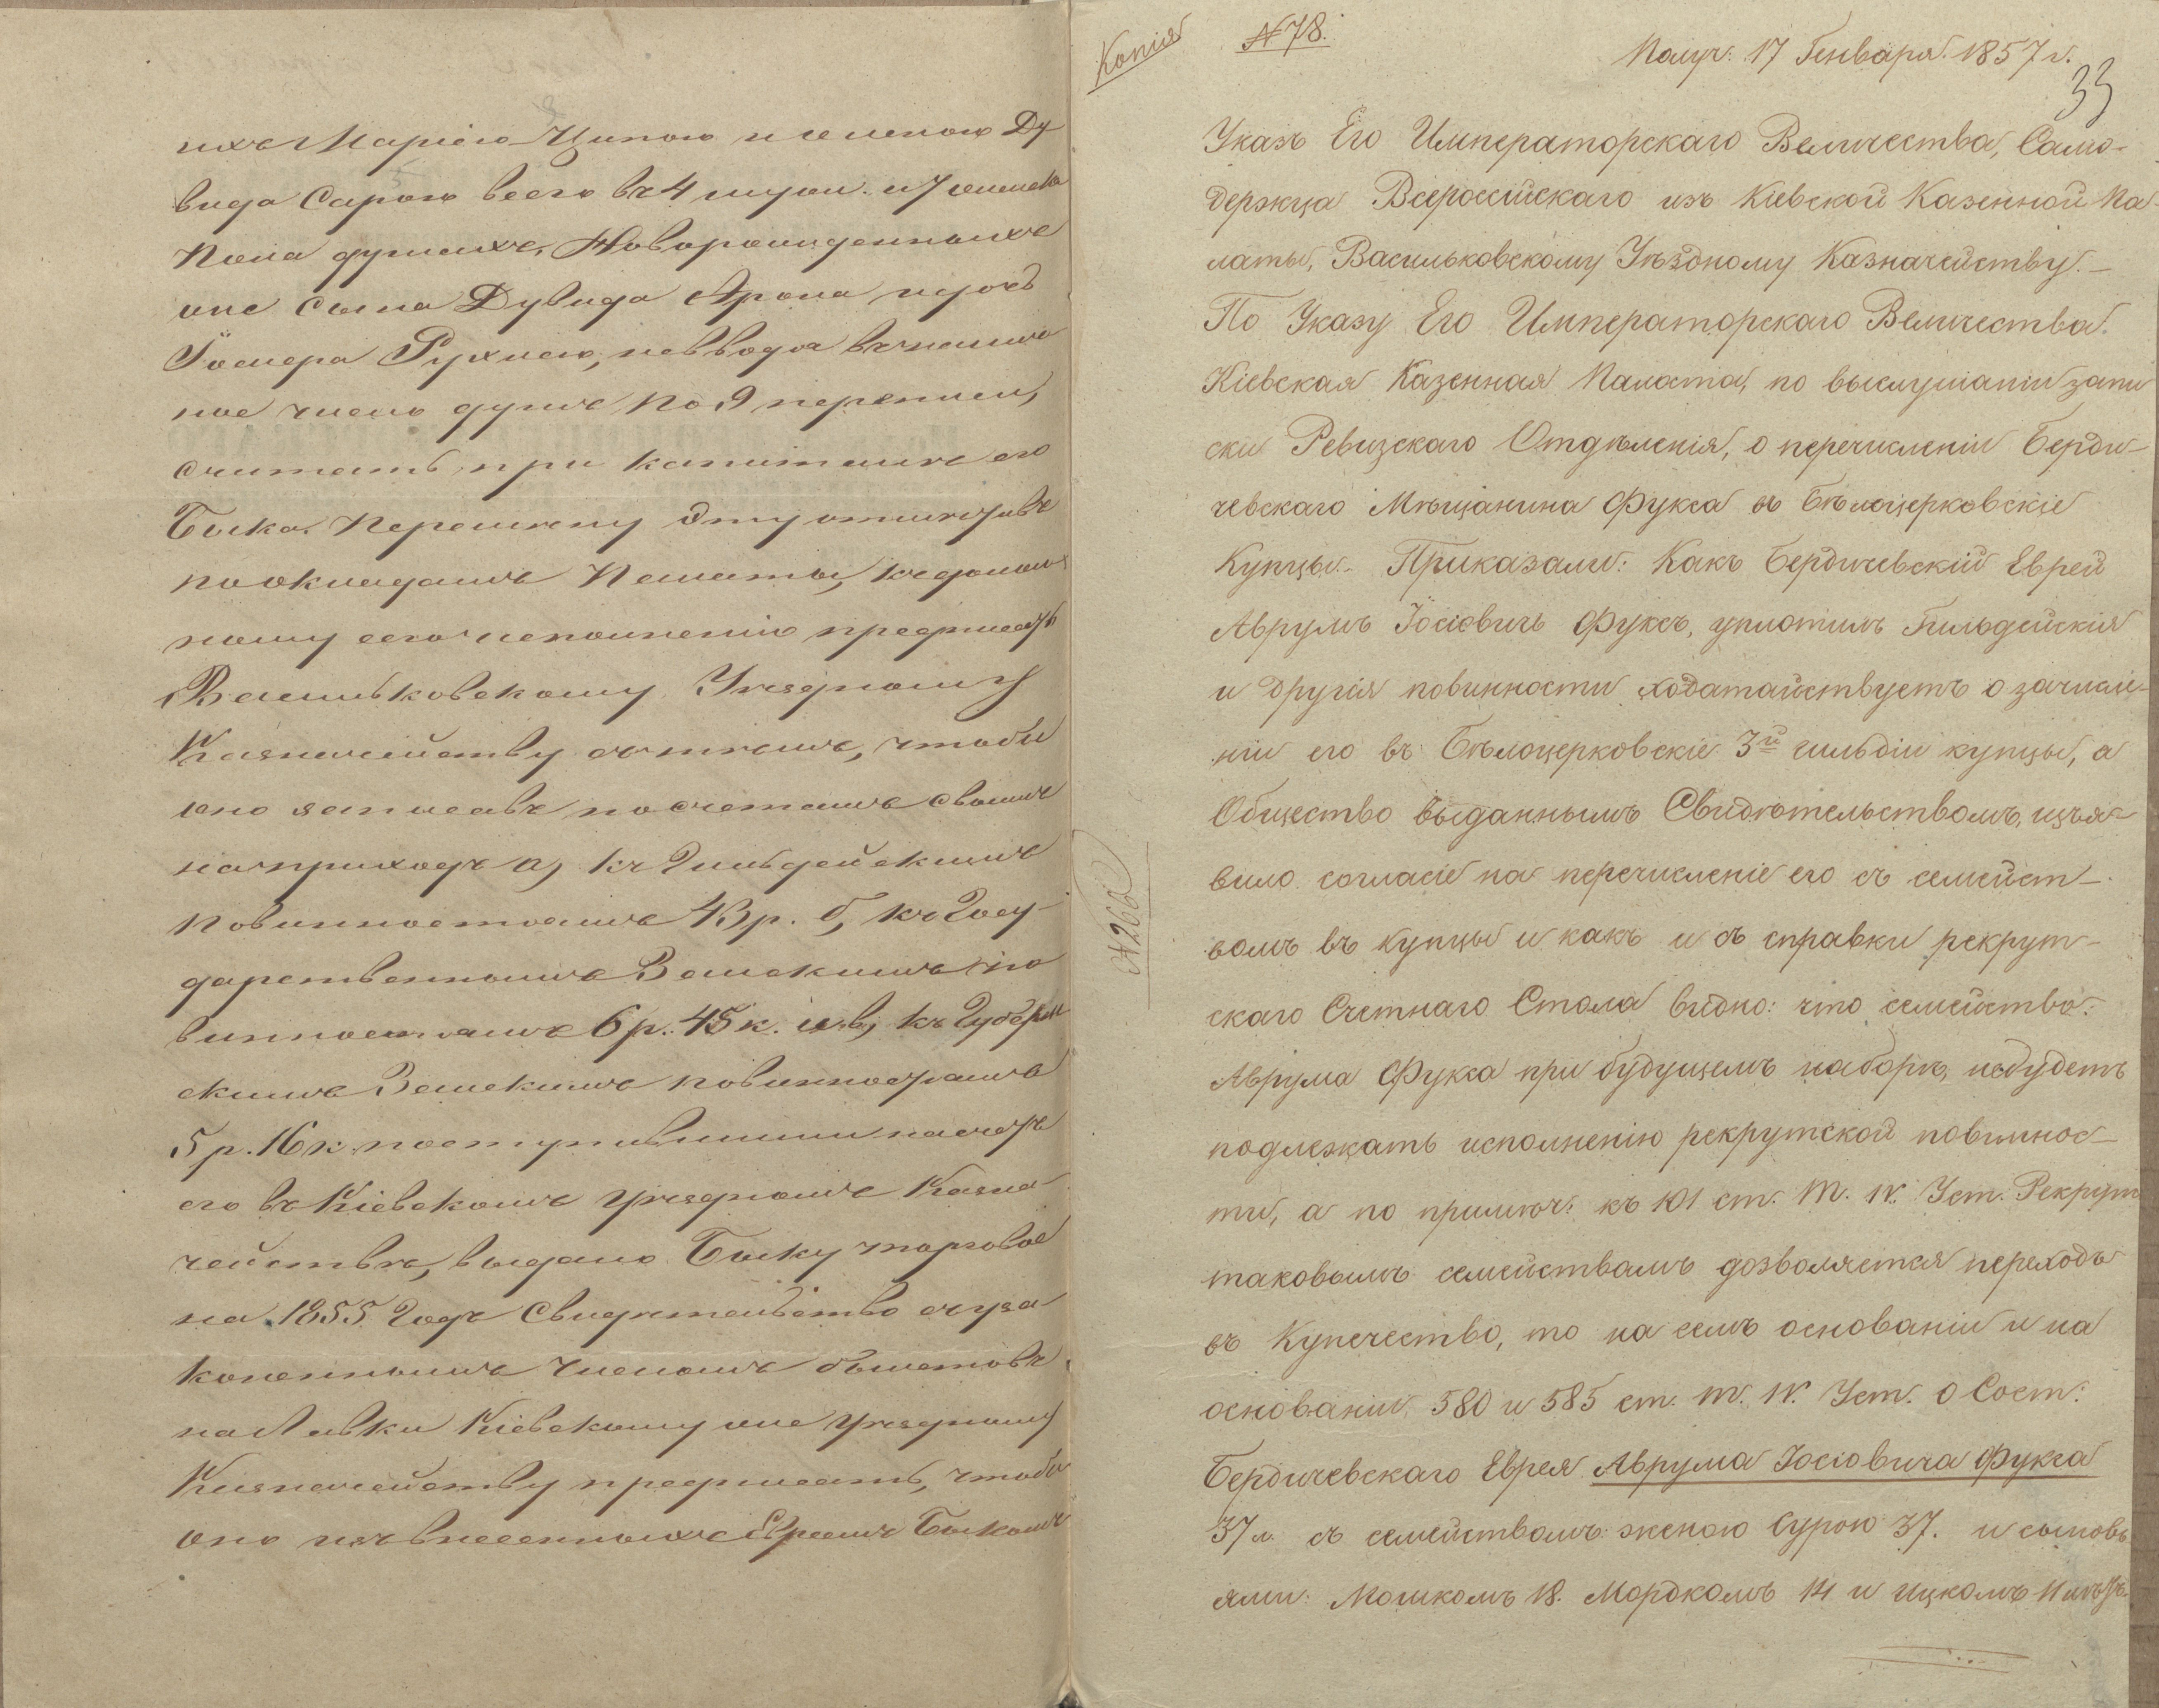 ихъ Маріею Ципою и женою Ду
вида Сарою всего въ 4 муж. и 7 женска
пола душахъ, Новорожденныхъ
же сына Дувида Арона и дочь
Іосифа Рухлею, не вводя въ налич
ное число душъ по 9 переписи,
считать при капиталѣ его
Быка. Перемѣну эту отмѣтивъ
по окладамъ Палаты, къ должн
ному сего исполненію предписать
Васильковскому Уѣздному
Казначейству съ тѣмъ, чтобы
оно записавъ по счетамъ своимъ
на приходъ а, къ Гильдейскимъ
повинностямъ 43 р. б, къ Госу-
дарственнымъ Земскимъ по
винностямъ 6 р. 45 к. и в, къ Губерн
скимъ Земскимъ повинностямъ
5 р. 16 к. поступившими на счетъ
его въ Кіевскомъ Уѣздномъ Казна-
чействѣ, выдано Быку торговое
на 1855 годъ свидѣтельство съ уза-
коненнымъ числомъ билетовъ
на Лавки Кіевскому же Уѣздному
Казначейству предписать, чтобы
оно изъ внесенныхъ Евреемъ Быкомъ
Копія
№ 78.
Получ: 17 Генваря 1857 г.
33
Указъ Его Императорскаго Величества, Само-
держца Всероссійскаго изъ Кіевской Казенной Па-
латы, Васильковскому Уѣздному Казначейству.—
По Указу Его Императорскаго Величества
Кіевская Казенная Палата, по выслушаніи запи
ски Ревизскаго Отдѣленія, о перечисленіи Берди-
чевскаго Мѣщанина Фукса въ Бѣлоцерковскіе
Купцы. Приказали: Какъ Бердичевскій Еврей
Аврумъ Іосіовичъ Фуксъ, уплотилъ Гильдейскія
и другія повинности ходатайствуетъ о зачисле-
ніи его въ Бѣлоцерковскіе 3й гильдіи купцы, а
Общество выданнымъ Свидѣтельствомъ, изъя-
вило согласіе на перечисленіе его съ семейст-
вомъ въ купцы и какъ и съ справки рекрут-
скаго Счетнаго Стола видно: что семейство
Аврума Фукса при будущемъ наборѣ, небудетъ
подлежать исполненію рекрутской повиннос-
ти, а по примѣч: къ 101 ст. т. IV. Уст. Рекрут
таковымъ семействамъ дозволяется переходъ
въ Купечество, то на семъ основаніи и на
основаніи 580 и 585 ст. т. IV. Уст. о Сост:
Бердичевскаго Еврея Аврума Іосіовича Фукса
37 л. съ семействомъ: женою Сурою 37. и сыновь
ями: Мошкомъ 18. Мордкомъ 14 и Ицкомъ 11 лѣтъ.
№ 266